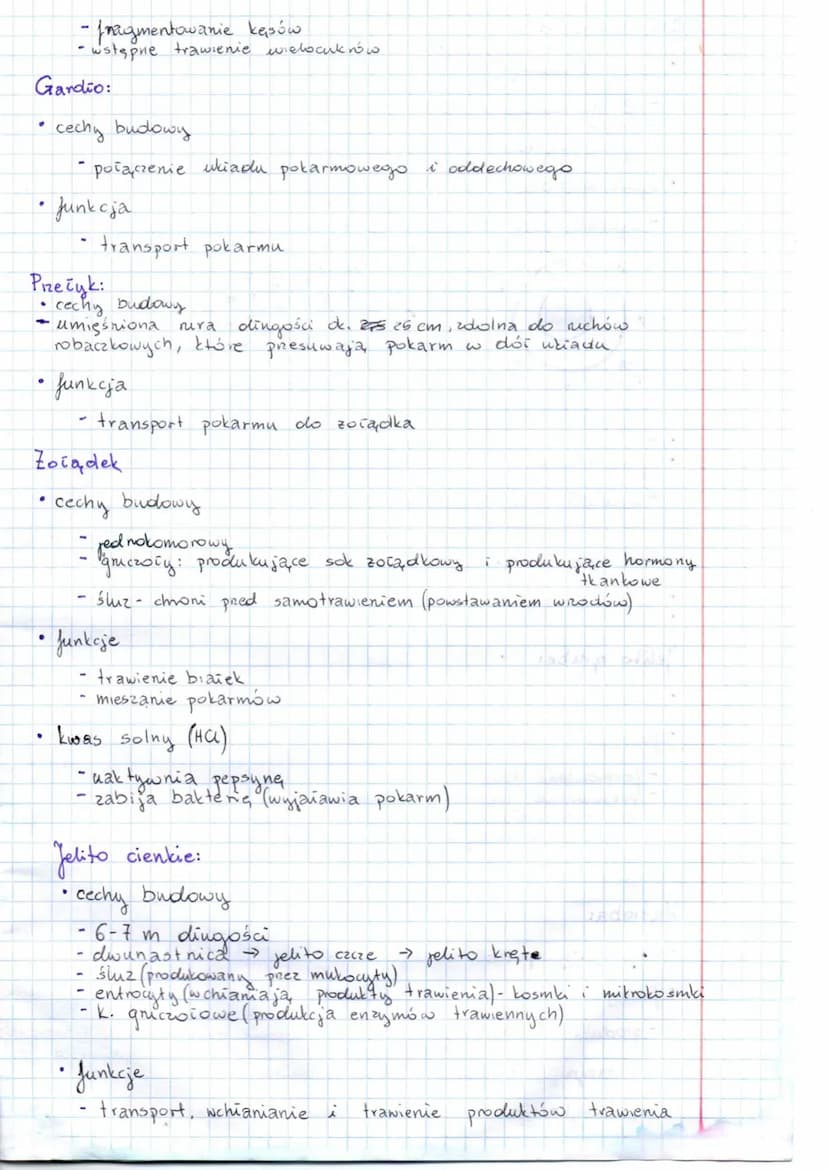 - fragmentowanie kęsów
- wstępne trawienie wielocukrów
Gardło:
• cechy budowy
- połączenie układu pokarmowego i oddechowego
• funkcja
- transport pokarmu
Przełyk:
• cechy budowy
- umięśniona rura długości ok. 25 cm, zdolna do ruchów
robaczkowych, które przesuwają pokarm w dół układu
• funkcja
- transport pokarmu do żołądka
Żołądek
• cechy budowy
- jednokomorowy
- gruczoły: produkujące sok żołądkowy i produkujące hormony
tkankowe
- śluz - chroni przed samotrawieniem (powstawaniem wrzodów)
• funkcje
- trawienie białek
- mieszanie pokarmów
• kwas solny (HCl)
- uaktywnia pepsynę
- zabija bakterię (wyjaławia pokarm)
Jelito cienkie:
• cechy budowy
- 6-7 m długości
- dwunastnica → jelito czcze → jelito kręte
- śluz (produkowany przez mukocyty)
- entrocyty (wchłaniają produkty trawienia) - kosmki i mikrokosmki
- k. gruczołowe (produkcja enzymów trawiennych)
• funkcje
- transport, wchłanianie i trawienie produktów trawienia